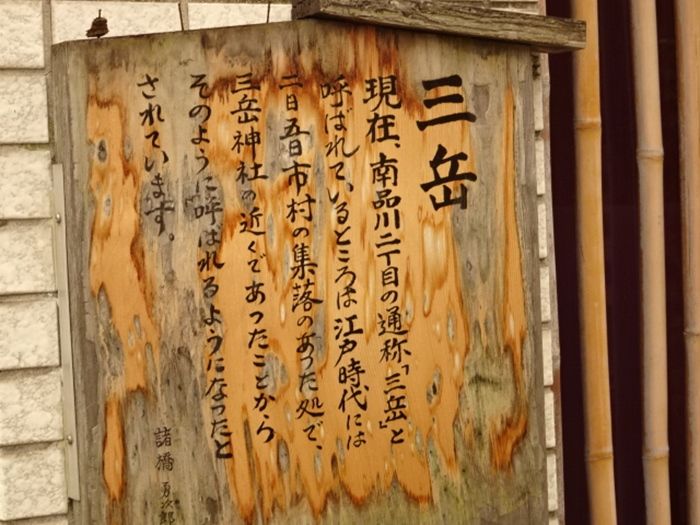 三岳
現在、南品川二丁目の通称「三岳」と
呼ばれているところは江戸時代には
二日五日市村の集落のあった処で、
三岳神社の近くであったことから
そのように呼ばれるようになったと
されています。
諸橋 勇次郎